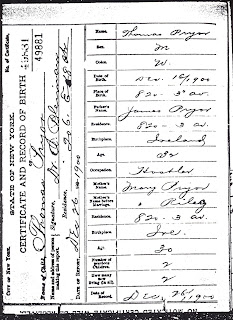 No. of Certificate,
49881
49881
STATE OF NEW YORK.
CERTIFICATE AND RECORD OF BIRTH
City of New York.
OF
Name of Child,
Thomas Pryor
Name and address of person
making this report.
Signature,
Residence,
206 E
DATE OF REPORT,
Dec 26 1900
Name. Thomas Pryor
Sex. M
Color. W.
Date of Birth. Dec. 16/1900
Place of Birth. 820-3 av.
Father's Name. James Pryor
Residence. 820-3 av.
Birthplace. Ireland
Age. 32
Occupation. Hostler
Mother's Name. Mary Pryor
Mother's Name before Marriage. " Riley
Residence. 820-3 av.
Birthplace. Ire.
Age. 30
Number of previous Children. 2
How many now living (in all). 2
Date of Record. Dec 26/1900